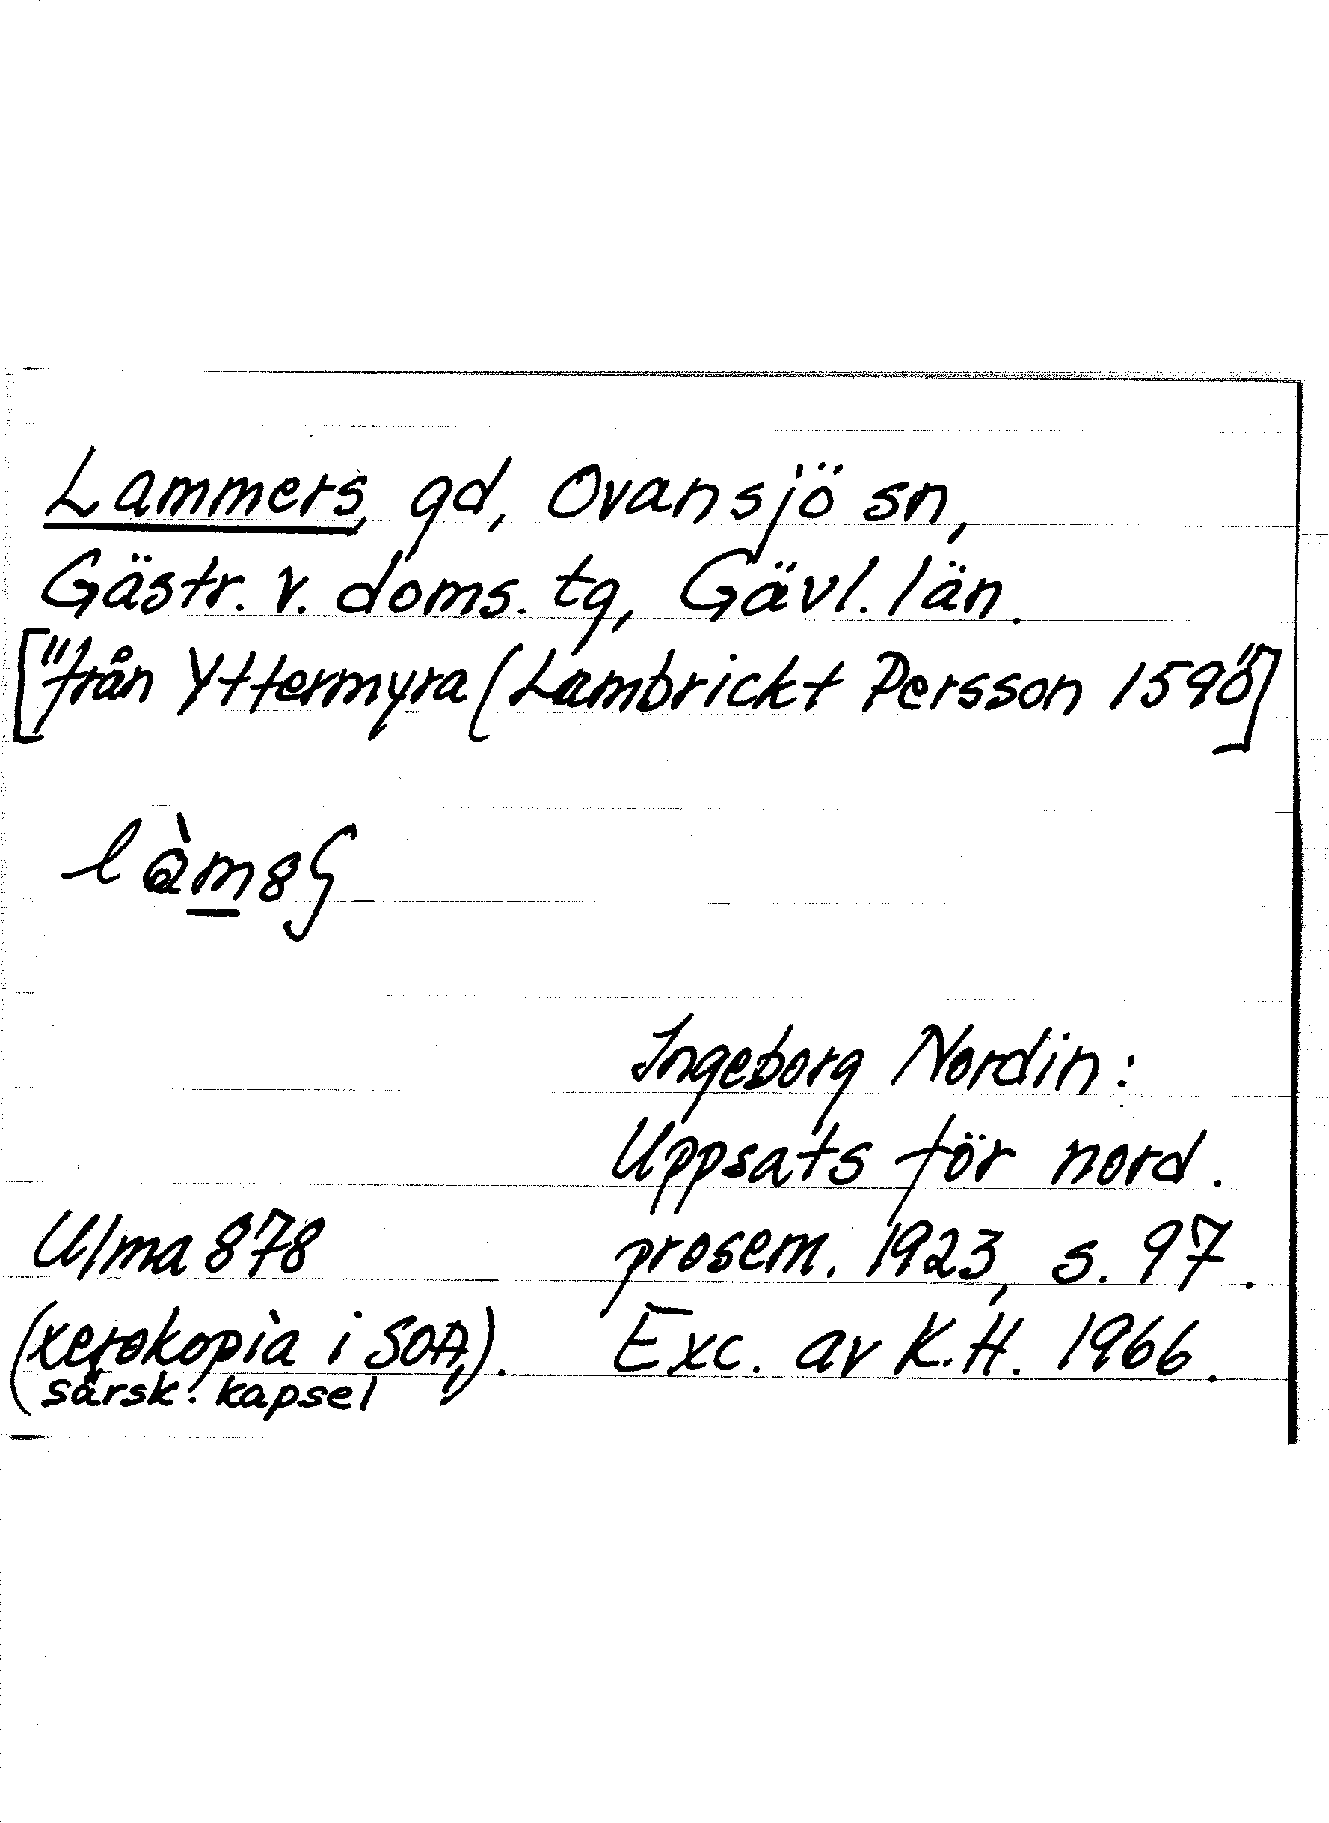 Lammers, gd, Ovansjö sn,
Gästr. v. doms. tg, Gävl. län.
["från Yttermyra (Lambrickt Persson 1590"]
Ingeborg Nordin:
Uppsats för nord.
Ulma 878 prosem. 1923, s. 97.
(xerokopia i SOA, Exc. av K.H. 1966.
särsk. kapsel).